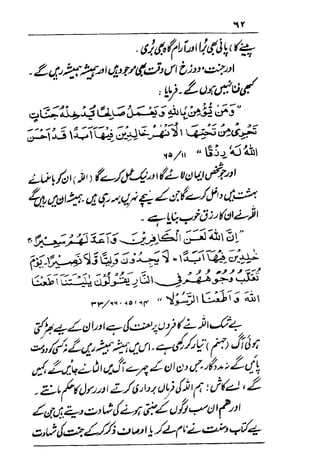 ۶۲
پینے گا) پانی بھی بُرا اور آرام گاہ بھی بُری۔
اور جنت و دوزخ اس وقت بھی موجود ہیں اور ہمیشہ ہمیشہ رہیں گے۔
کبھی فنا نہیں ہوں گے۔ فرمایا:
"وَمَنْ يُؤْمِنْ بِاللهِ وَيَعْمَلْ صَالِحًا يُدْخِلْهُ جَنَّاتٍ
تَجْرِي مِنْ تَحْتِهَا الْأَنْهَارُ خَالِدِينَ فِيهَا أَبَدًا قَدْ أَحْسَنَ
اللهُ لَهُ رِزْقًا" ۶۵/۱۱
اور جو شخص ایمان لائے گا اور نیک عمل کرے گا (اللہ) ان کو باغہائے
بہشت میں داخل کرے گا جن کے نیچے نہریں بہہ رہی ہیں۔ ہمیشہ ان میں رہیں گے
اللہ نے ان کا رزق خوب بنایا ہے۔
"إِنَّ اللهَ لَعَنَ الْكَافِرِينَ وَأَعَدَّ لَهُمْ سَعِيرًا
خَالِدِينَ فِيهَا أَبَدًا۔ لَا يَجِدُونَ وَلِيًّا وَّلَا نَصِيرًا۔ يَوْمَ
تُقَلَّبُ وُجُوهُهُمْ فِي النَّارِ يَقُولُونَ يٰلَيْتَنَا أَطَعْنَا
اللهَ وَأَطَعْنَا الرَّسُولَا" ۶۴، ۶۵، ۶۶/۳۳
بے شک اللہ نے کافروں پر لعنت کی ہے اور ان کے لیے بھڑکتی
ہوئی آگ (جہنم) تیار کر رکھی ہے۔ اس میں ہمیشہ ہمیشہ رہیں گے نہ کسی کو دوست
پائیں گے نہ مددگار جس دن ان کے چہرے آگ میں الٹائے جائیں گے، کہیں
گے، اے کاش! ہم اللہ کی فرماں برداری کرتے اور رسول کا حکم مانتے۔
اور ہم ان سب لوگوں کے جنتی ہونے کی شہادت دیتے ہیں جن کے
لیے کتاب و سنت نے نام لے کر یا اوصاف ذکر کر کے جنت کی شہادت